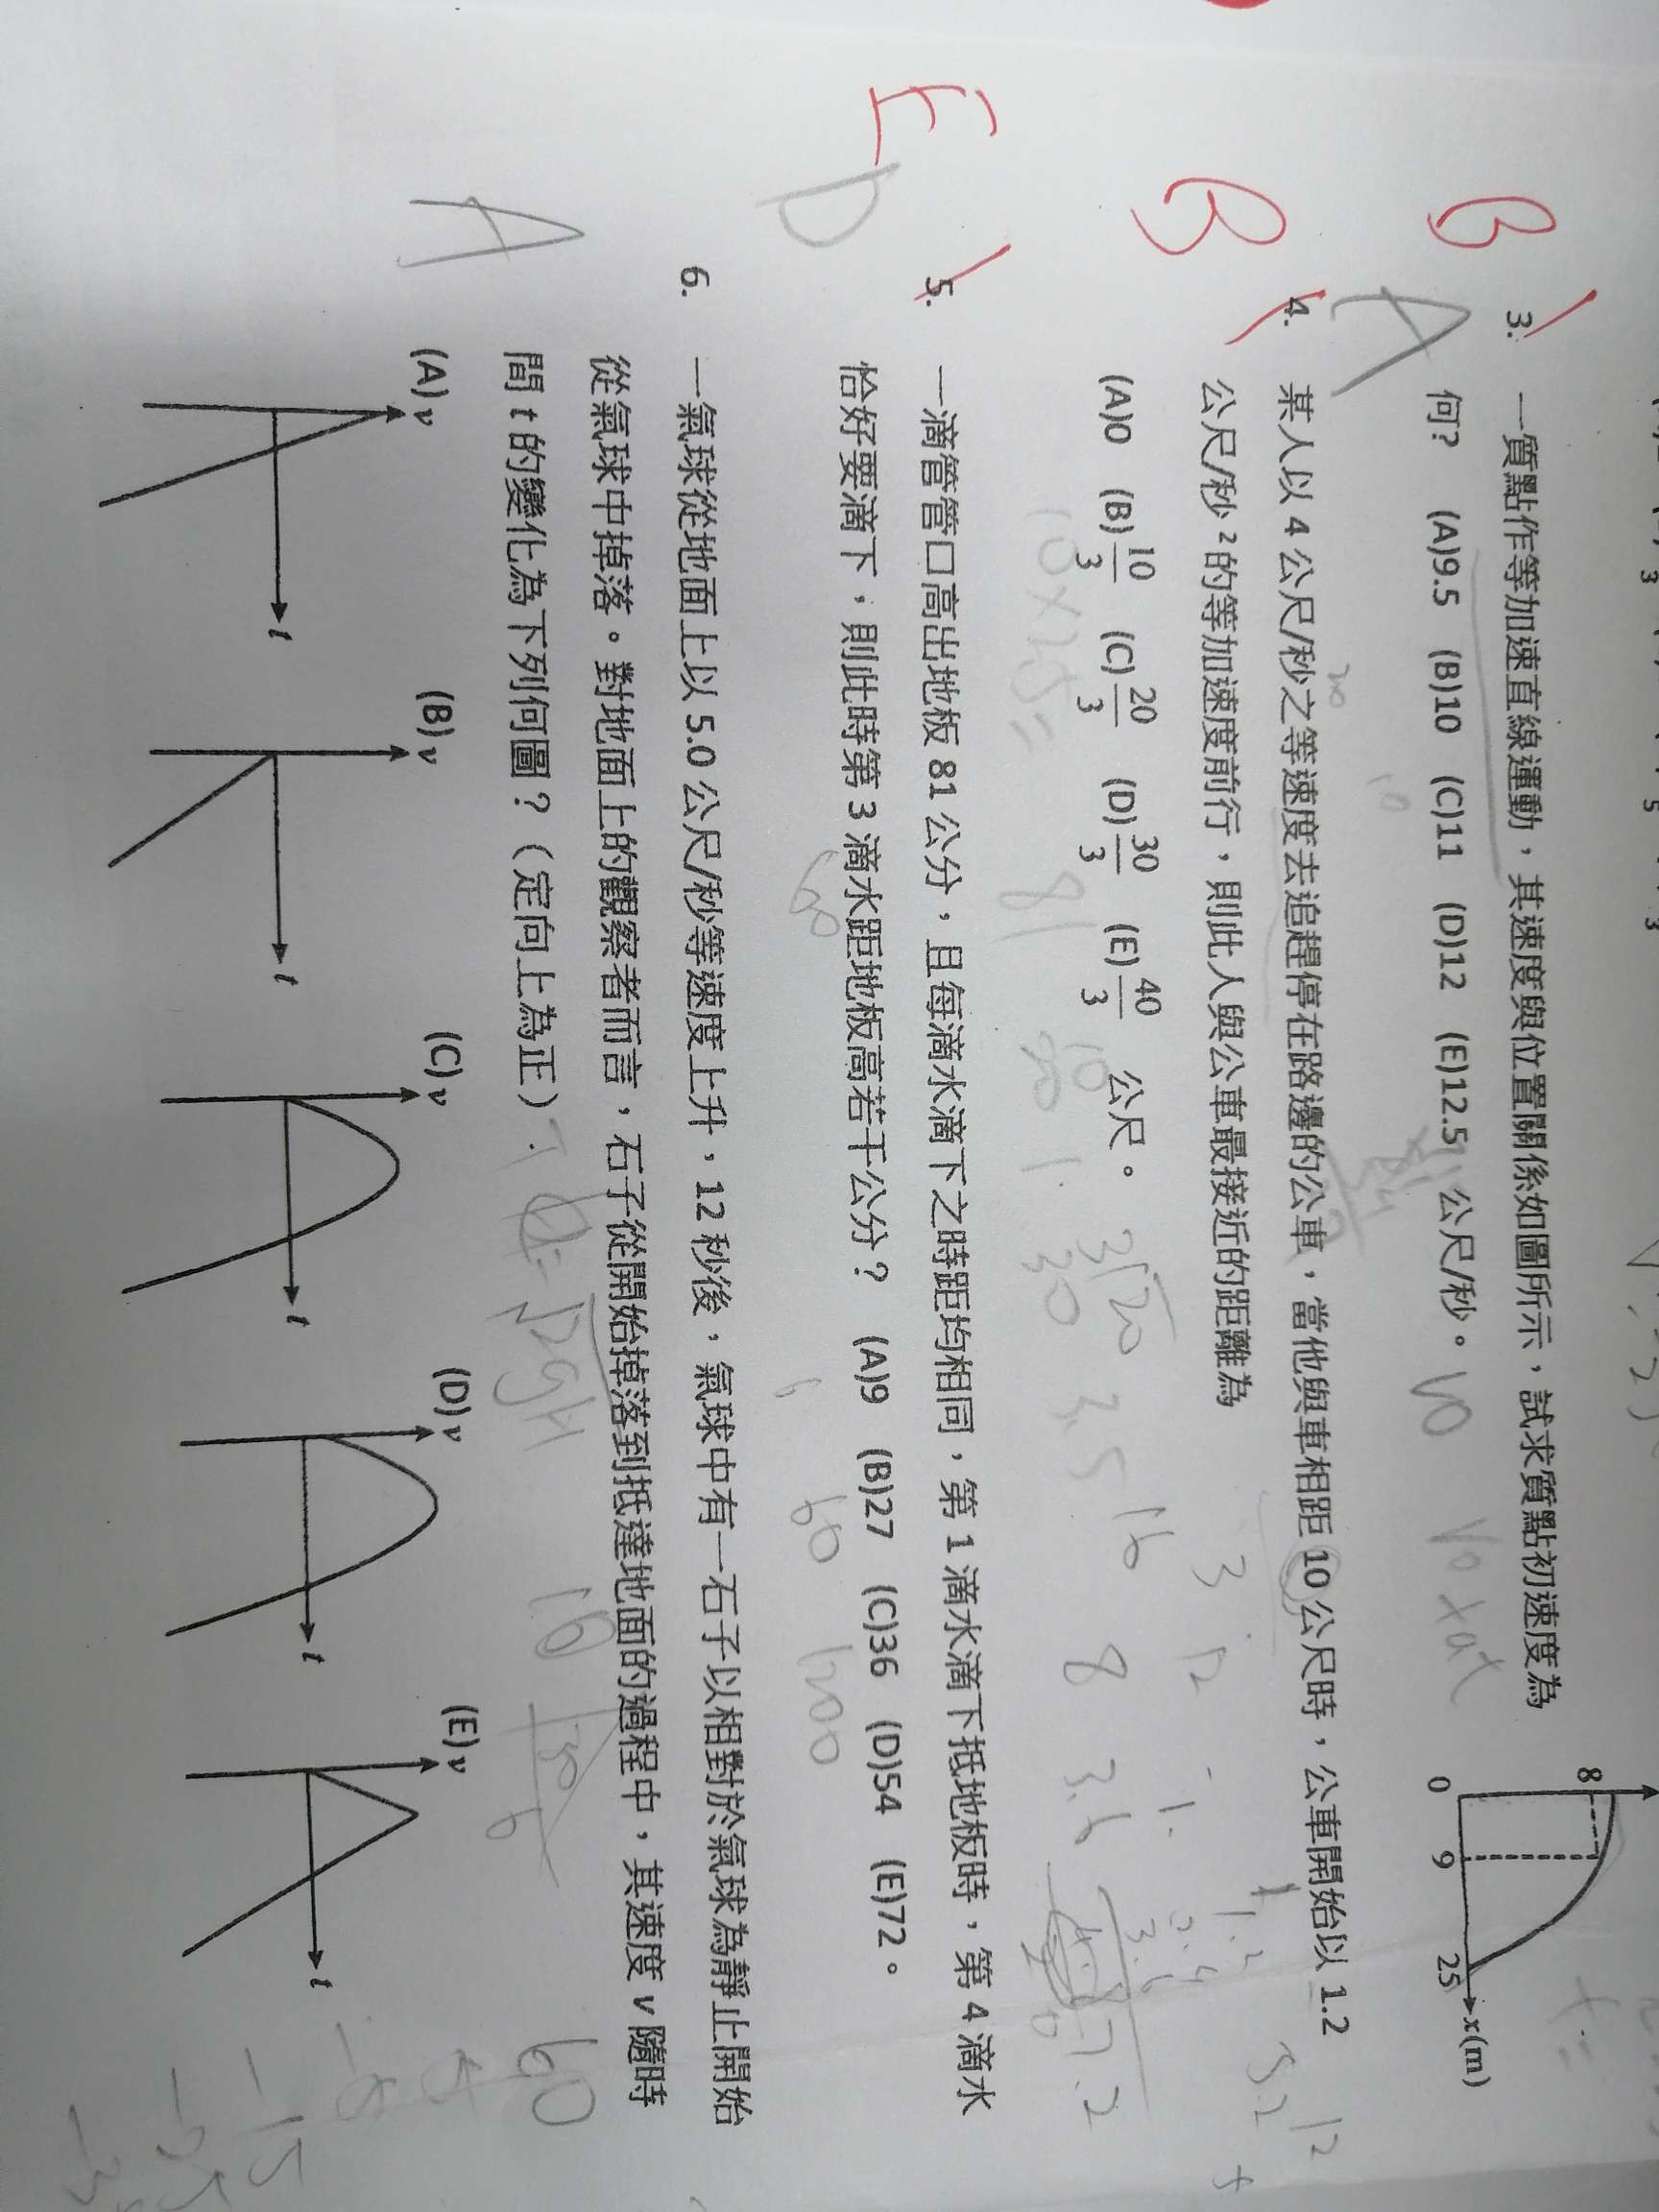 B 3. 一質點作等加速直線運動，其速度與位置關係如圖所示，試求質點初速度為
何？ (A)9.5 (B)10 (C)11 (D)12 (E)12.5 公尺/秒。
8
0 9 25 x(m)
A
B 4. 某人以 4 公尺/秒之等速度去追趕停在路邊的公車，當他與車相距 10 公尺時，公車開始以 1.2
公尺/秒²的等加速度前行，則此人與公車最接近的距離為
(A)0 (B)10/3 (C)20/3 (D)30/3 (E)40/3 公尺。
E D 5. 一滴管管口高出地板 81 公分，且每滴水滴下之時距均相同，第 1 滴水滴下抵地板時，第 4 滴水
恰好要滴下，則此時第 3 滴水距地板高若干公分？ (A)9 (B)27 (C)36 (D)54 (E)72。
A 6. 一氣球從地面上以 5.0 公尺/秒等速度上升，12 秒後，氣球中有一石子以相對於氣球為靜止開始
從氣球中掉落。對地面上的觀察者而言，石子從開始掉落到抵達地面的過程中，其速度 v 隨時
間 t 的變化為下列何圖？（定向上為正）
(A) v t (B) v t (C) v t (D) v t (E) v t